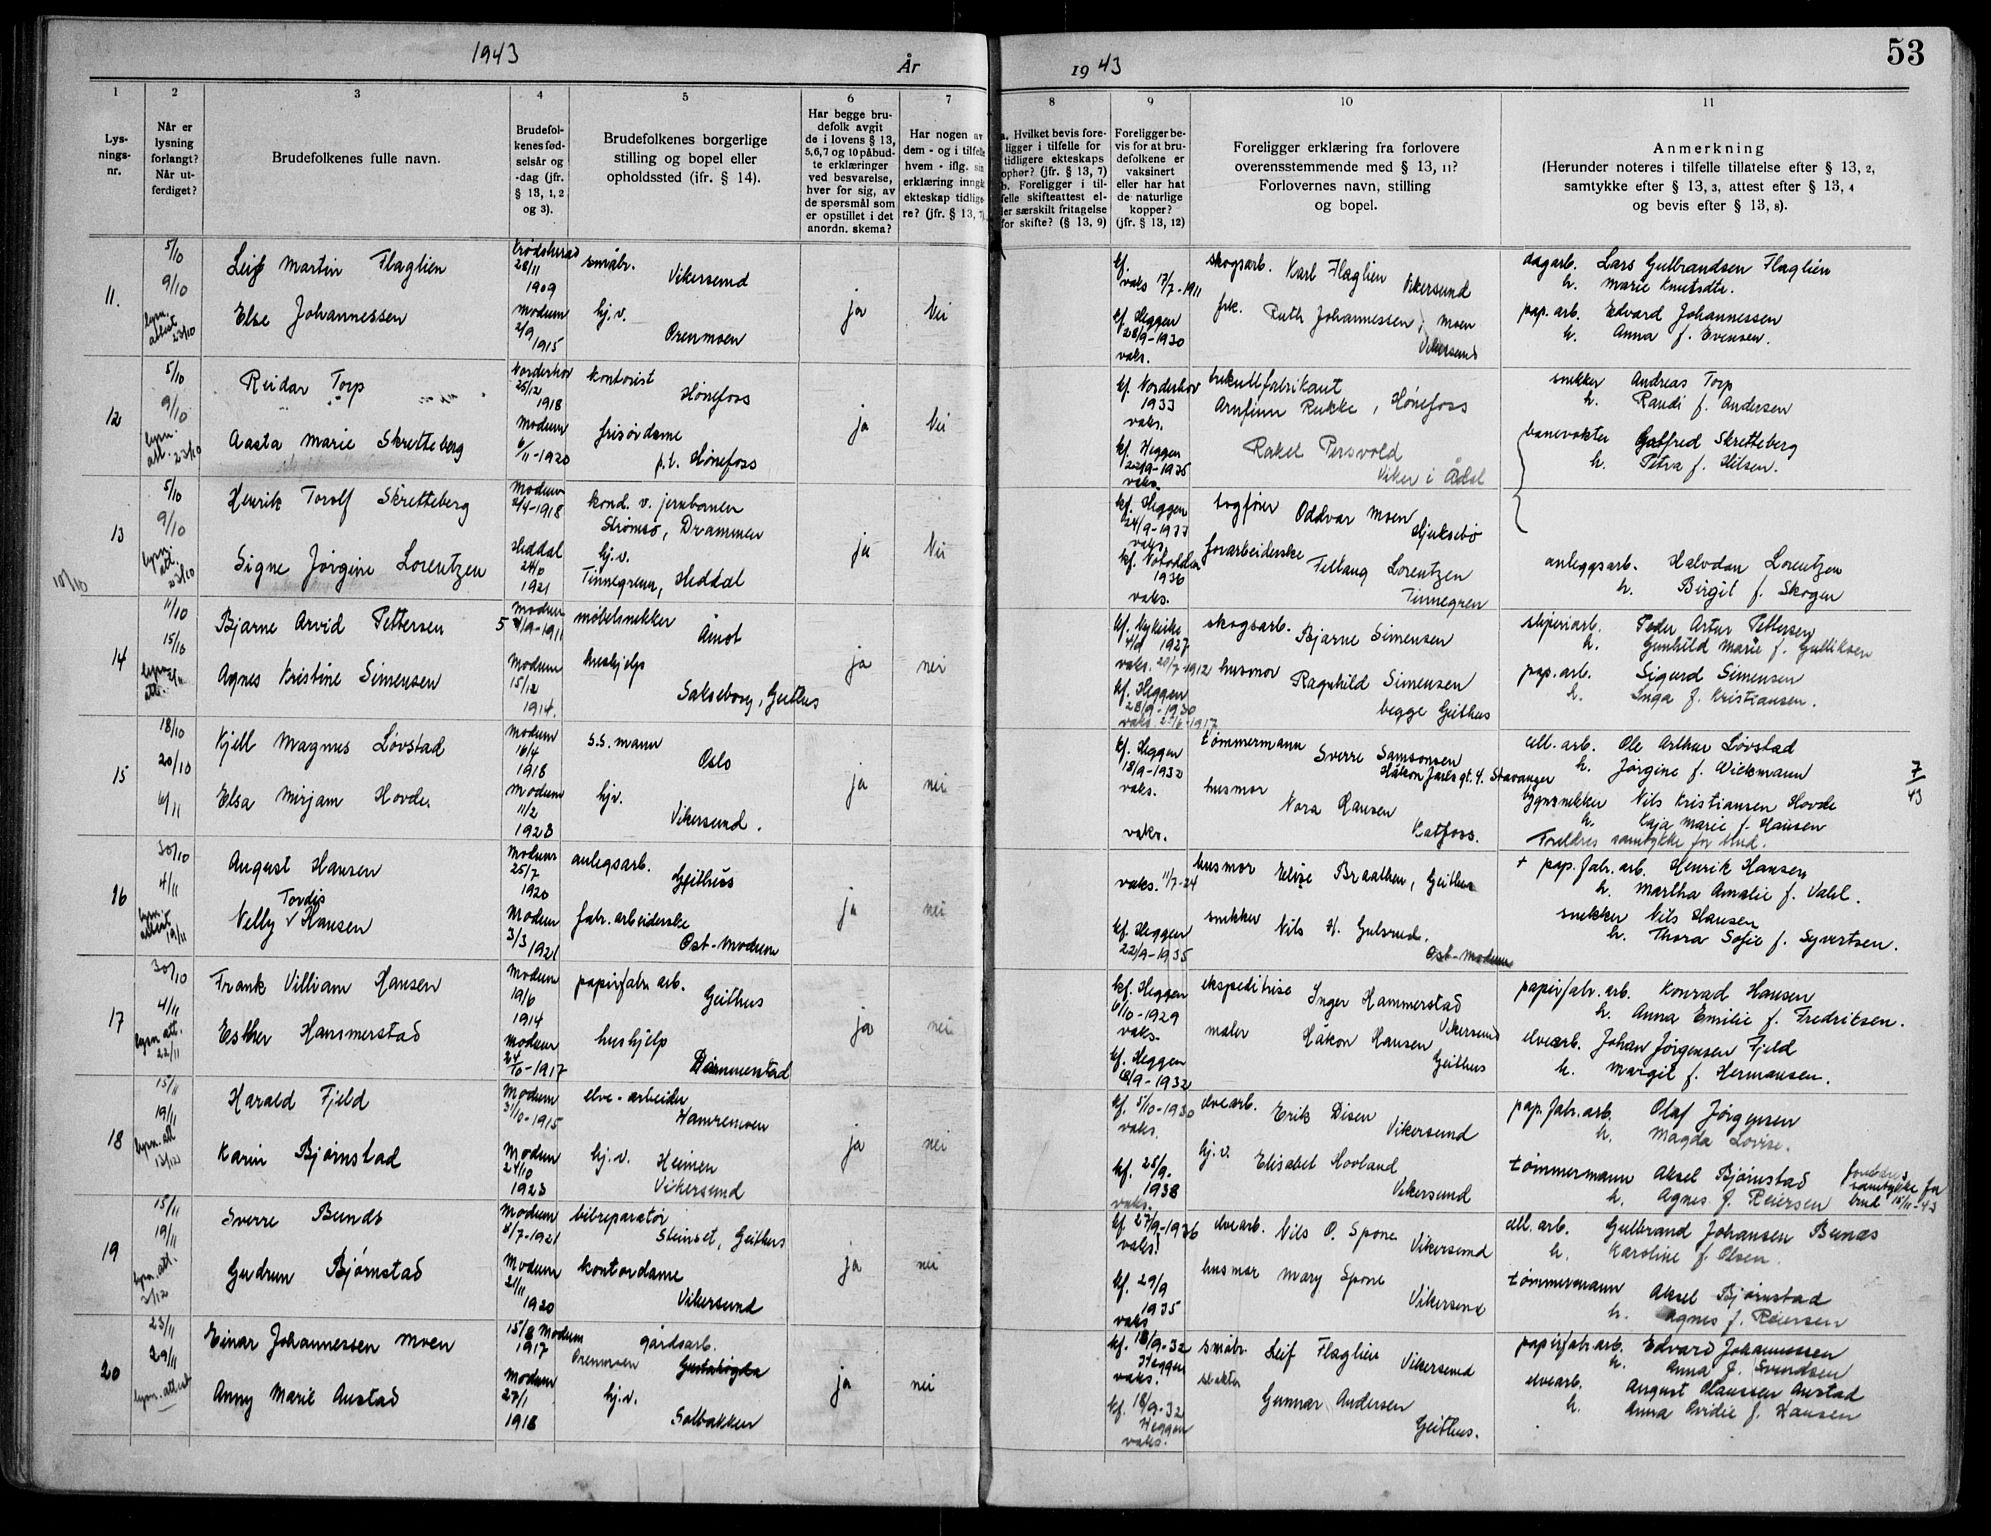 1943
År
19 43
53
1
2
3
4
5
6
7
8
9
10
11
Lysningsnr.
Når er lysning forlangt? Når utferdiget?
Brudefolkenes fulle navn.
Brudefolkenes fødselsår og -dag (jfr. § 13, 1, 2 og 3).
Brudefolkenes borgerlige stilling og bopel eller opholdssted (ifr. § 14).
Har begge brudefolk avgit de i lovens § 13, 5,6,7 og 10 påbudte erklæringer ved besvarelse, hver for sig, av de spørsmål som er opstillet i det anordn. skema?
Har nogen av dem - og i tilfelle hvem - iflg. sin erklæring inngått ekteskap tidligere? (jfr. § 13, 7)
a. Hvilket bevis foreligger i tilfelle for tidligere ekteskaps ophør? (jfr. § 13, 7)
b. Foreligger i tilfelle skifteattest eller særskilt fritagelse for skifte? (§ 13, 9)
Foreligger bevis for at brudefolkene er vaksinert eller har hat de naturlige kopper? (jfr. § 13, 12)
Foreligger erklæring fra forlovere overensstemmende med § 13, 11? Forlovernes navn, stilling og bopel.
Anmerkning
(Herunder noteres i tilfelle tillatelse efter § 13, 2, samtykke efter § 13, 3, attest efter § 13, 4 og bevis efter § 13, 8).
11.
5/10
9/10
lysn. attest 23/10
Leif Martin Flaglien
Krødsherad 28/11 1909
småbr. Vikersund
Else Johannessen
Modum 2/9 1915
hj.v. Orenmoen
ja
Nei
kf. vaks 17/7-1911
kf. Heggen 28/9-1930 vaks.
skogsarb. Karl Flaglien Vikersund
frk. Ruth Johannessen, Moen Vikersund
dagarb. Lars Gulbrandsen Flaglien
h. Marie Knutsdtr.
pap. arb. Edvard Johannessen
h. Anna f. Evensen.
12
5/10
9/10
lysn. att. 23/10
Reidar Torp
Norderhov 25/12 1918
kontorist Hønefoss
Aasta Marie Skretteberg
Modum 6/11-1920
frisørdame p.t. Hønefoss
ja
Nei
kf. Norderhov 1933 vaks.
kf. Heggen 22/9-1935 vaks.
trikotfabrikant Arnfinn Rukke, Hønefoss
Rakel Persvold Viker i Ådal
snekker Andreas Torp
h. Randi f. Andersen
banevokter Gotfred Skretteberg
h. Petra f. Hilsen.
13
10/10
5/10
9/10
lysn. att. 23/10
Henrik Torolf Skretteberg
Modum 2/4-1918
kond. v. jernbanen Strømsø, Drammen
Signe Jørgine Lorentzen
Heddal 1921
hj.v. Tinnegrena, Heddal
ja
Nei
kf. Heggen 24/9-1933 vaks.
kf. Notodden 1936 vaks.
togfører Oddvar Moen Hjuksebø
forarbeiderske Fellaug Lorentzen Tinnegren
anleggsarb. Halvdan Lorentzen
h. Birgit f. Skogen
14
11/10
15/10
lysn. att.
Bjarne Arvid Pettersen
5
Modum 4/9-1911
møbelsnekker Åmot
Agnes Kristine Simensen
Modum 15/12 1914.
hushjelp Sakseborg, Geithus
ja
nei
kf. Nykirke 1927 vaks. 20/7-1912
kf. Heggen 28/9-1930 vaks. 1917
skogsarb. Bjarne Simensen
husmor Ragnhild Simensen begge Geithus
sliperiarb. Peder Artur Pettersen
h. Gunhild Marie f. Gulliksen
pap. arb. Sigurd Simensen
h. Inga f. Kristiansen.
15
18/10
20/10
6/11
Kjell Magnus Løvstad
Modum 16/4 1918
s.s. mann Oslo
Elsa Mirjam Hovde.
Modum 11/2 1923
hjv. Vikersund.
ja
nei
kf. Heggen 18/9-1932 vaks.
vaks.
tømmermann Sverre Samsonsen Håkon Jarls gt. 4. Stavanger
husmor Nora Hansen Katfoss.
cell. arb. Ole Arthur Løvstad
h. Jørgine f. Wickmann
bygnsnekker Nils Kristiansen Hovde
h. Kaja Marie f. Hansen
Foreldres samtykke for brud.
7/43
16
30/10
4/11
lysn. attest 19/11
August Hansen
Modum 25/7 1920
anlegsarb. Geithus
Nelly Tordis Hansen
Modum 3/3 1921
fabr. arbeiderske Øst-Modum
ja
nei
vaks. 11/7-24
kf. Heggen 22/9-1935
husmor Elise Braathen, Geithus
snekker Nils H. Gulsrud. Øst-Modum
+ pap. fabr. arb. Henrik Hansen
h. Martha Amalie f. Vahl.
snekker Nils Hansen
h. Thora Sofie f. Syvertsen.
17
30/10
4/11
lysn. att. 22/11
Frank Villiam Hansen
Modum 19/6 1914
papirfabr. arb. Geithus
Esther Hammerstad
Modum -1917
hushjelp
ja
nei
kf. Heggen 6/10-1929 vaks.
kf. Heggen 18/9-1932
ekspeditrise Inger Hammerstad Vikersund
maler Håkon Hansen Geithus
papirfabr. arb. Konrad Hansen
h. Anna Emilie f. Fredriksen.
elvearb. Johan Jørgensen Fjeld
h. Margit f. Hermansen.
18
15/11
19/11
lysn. att 13/12
Harald Fjeld
Modum 31/10-1915
elve-arbeider Hamremoen
Karin Bjørnstad
Modum 24/10 1923
hj.v. Heimen Vikersund
ja
nei
kf. 5/10-1930 vaks.
kf. 25/9. 1938 vaks.
elvearb. Erik Disen Vikersund
hj.v. Elisabet Hovland Vikersund
pap. fabr. arb. Olaf Jørgensen
h. Magda Lovise.
tømmermann Aksel Bjørnstad
h. Agnes f. Reiersen
foreldres samtykke for brud 15/11-43
19
15/11
19/11
lysn. att. 3/12
Sverre Bunds
Modum 8/7-1921
bilreparatør Steinset, Geithus
Gudrun Bjørnstad
Modum 21/11 1920
kontordame Vikersund
ja
nei
kf. 27/9-1936 vaks.
kf. 29/9 1935 vaks
elvearb. Nils O. Spone Vikersund
husmor Mary Spone Vikersund
cell. arb. Gulbrand Johansen Bunds
h. Karoline f. Olsen.
tømmermann Aksel Bjørnstad
h. Agnes f. Reiersen
20
23/11
29/11
lysn. attest
Einar Johannessen Moen
15/8 Modum 1917
gårdsarb. Orenmoen
Anny Marie Austad
Modum 27/1 1918
hj.v. Solbakken
ja
nei
kf. 18/9-32 Heggen vaks.
kf. 18/9-32 Heggen vaks.
småbr Leif Flaglien Vikersund
slakter Gunnar Andersen Geithus.
papirfabr. arb. Edvard Johannessen
h. Anna f. Svendsen
elvearb. August Olaussen Austad
h. Anna Ovidie f. Hansen